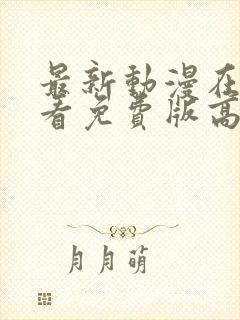 最新動漫在
看免費版高
月月萌